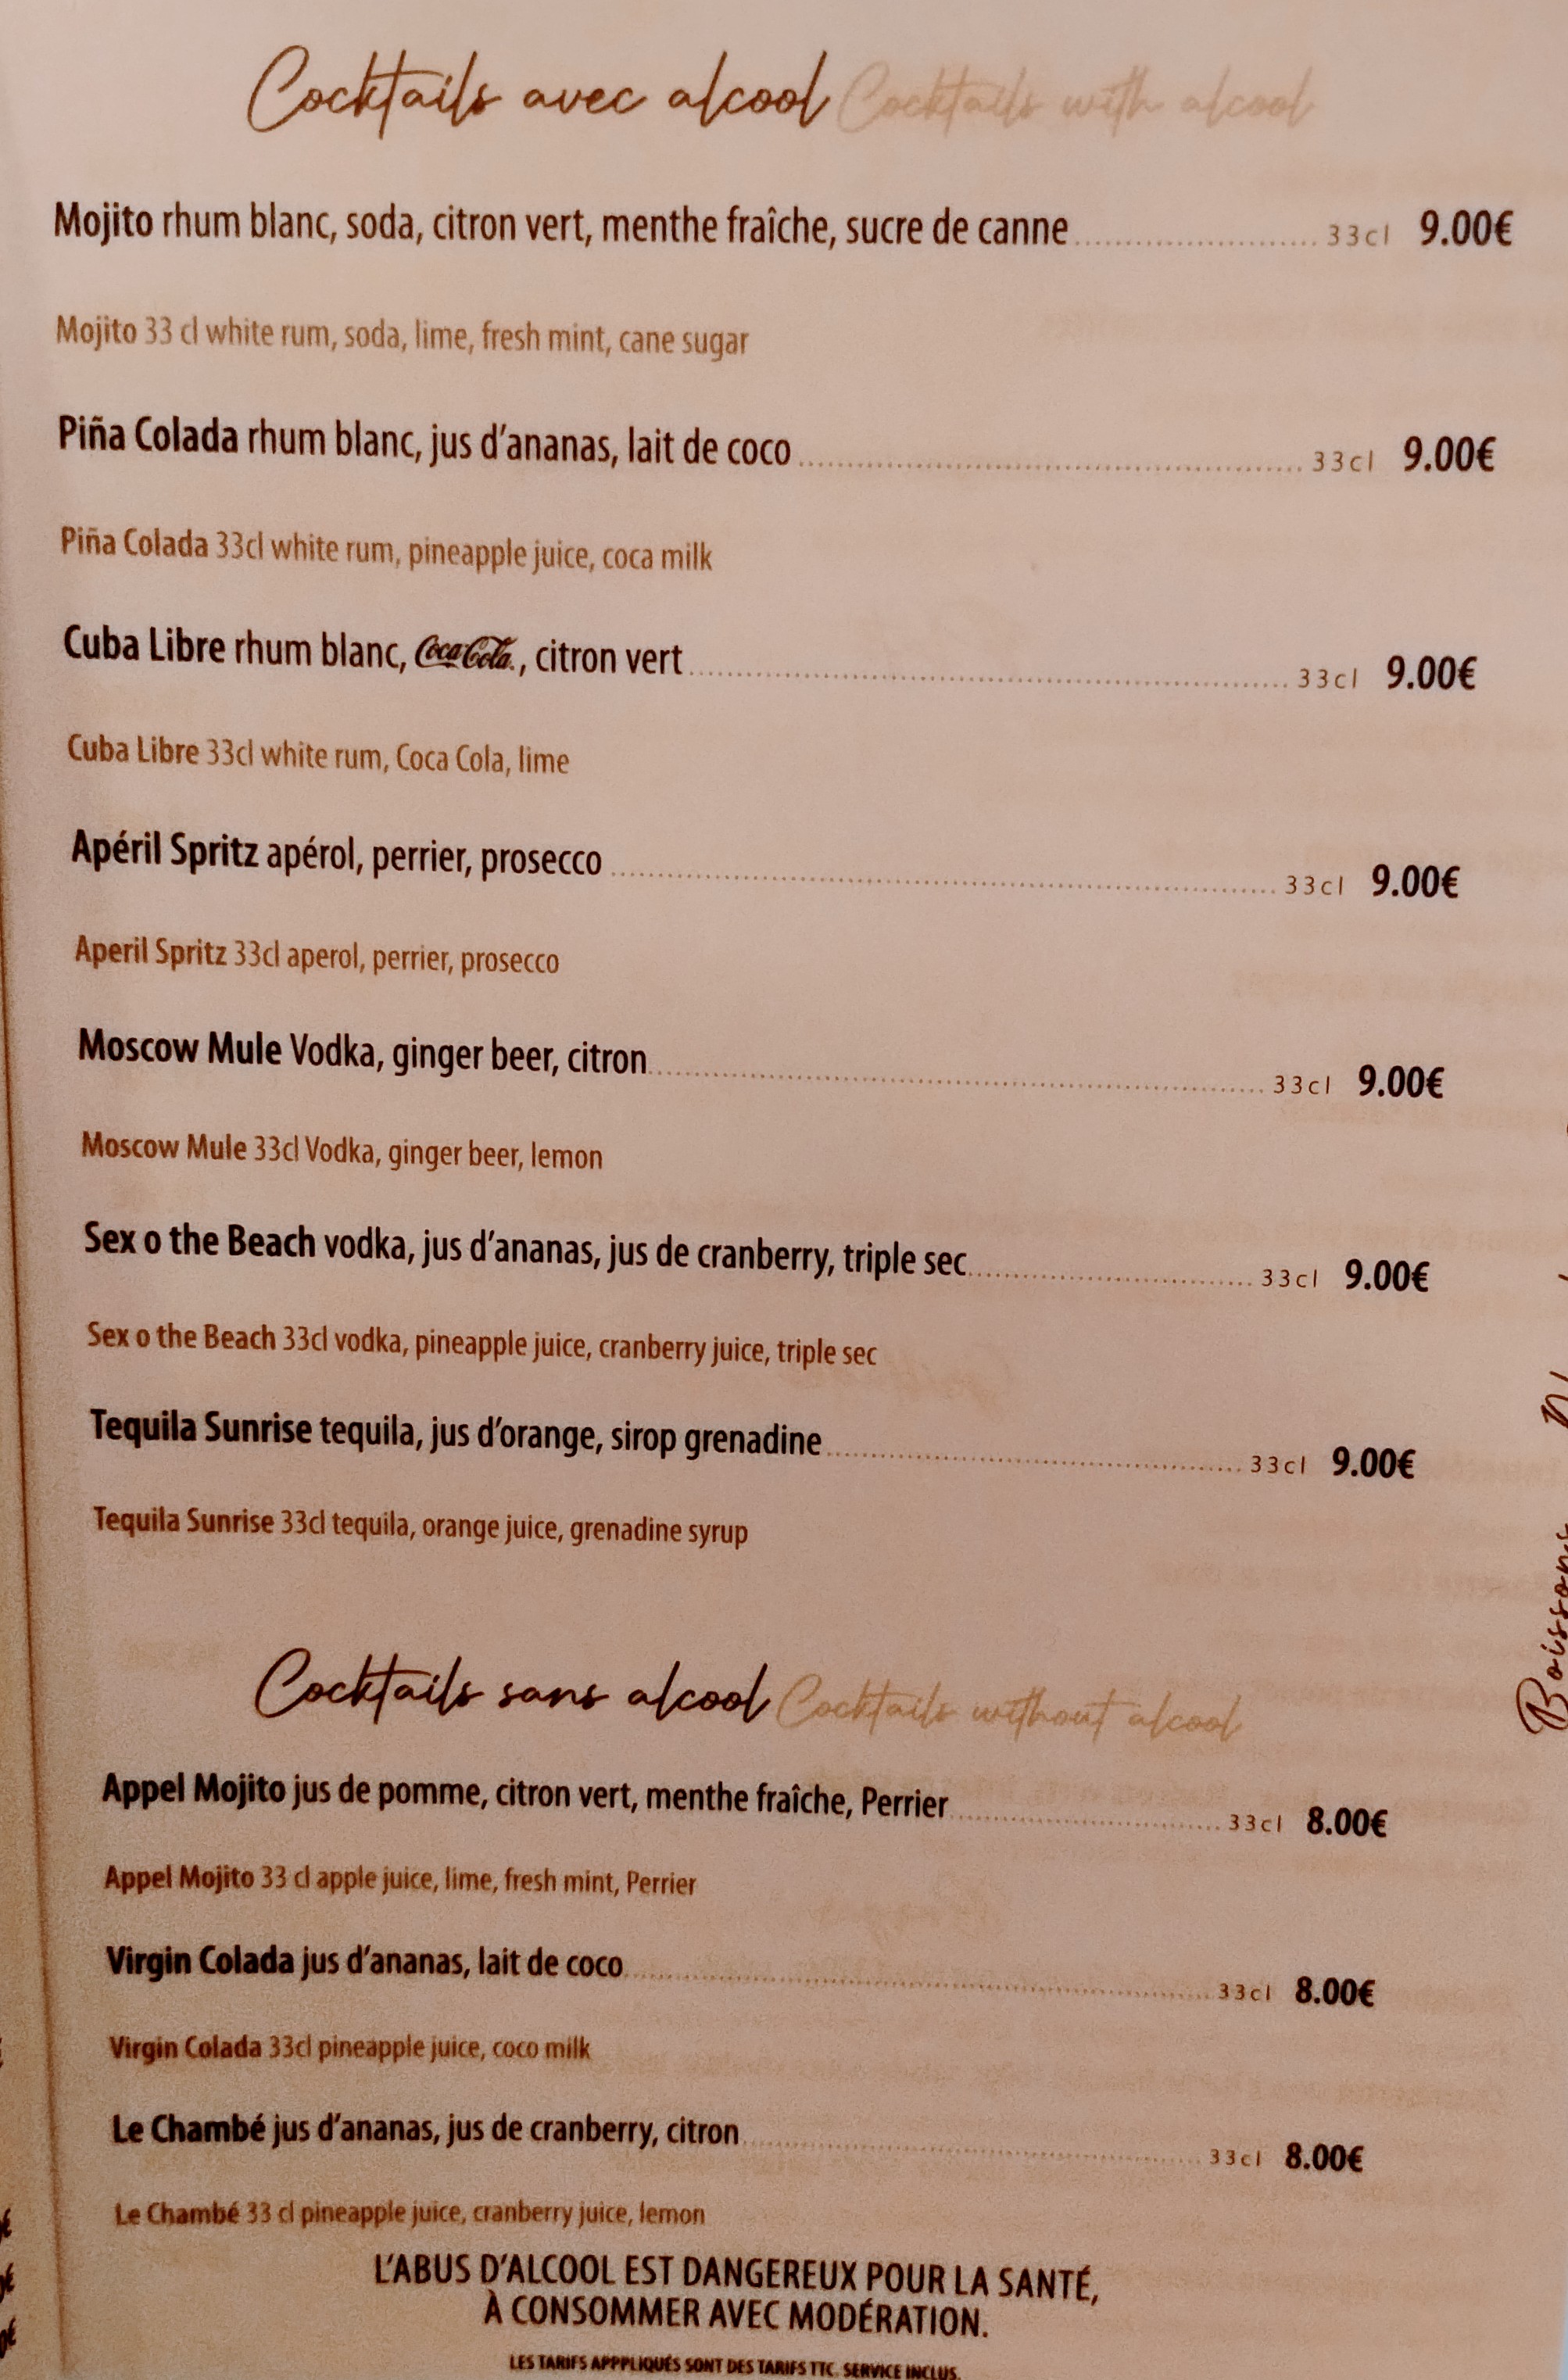 Cocktails avec alcool Cocktails with alcool
Mojito rhum blanc, soda, citron vert, menthe fraîche, sucre de canne 33cl 9.00€
Mojito 33 cl white rum, soda, lime, fresh mint, cane sugar
Piña Colada rhum blanc, jus d'ananas, lait de coco 33cl 9.00€
Piña Colada 33cl white rum, pineapple juice, coca milk
Cuba Libre rhum blanc, Coca-Cola, citron vert 33cl 9.00€
Cuba Libre 33cl white rum, Coca Cola, lime
Apéril Spritz apérol, perrier, prosecco 33cl 9.00€
Aperil Spritz 33cl aperol, perrier, prosecco
Moscow Mule Vodka, ginger beer, citron 33cl 9.00€
Moscow Mule 33cl Vodka, ginger beer, lemon
Sex o the Beach vodka, jus d'ananas, jus de cranberry, triple sec 33cl 9.00€
Sex o the Beach 33cl vodka, pineapple juice, cranberry juice, triple sec
Tequila Sunrise tequila, jus d'orange, sirop grenadine 33cl 9.00€
Tequila Sunrise 33cl tequila, orange juice, grenadine syrup
Cocktails sans alcool Cocktails without alcool
Appel Mojito jus de pomme, citron vert, menthe fraîche, Perrier 33cl 8.00€
Appel Mojito 33 cl apple juice, lime, fresh mint, Perrier
Virgin Colada jus d'ananas, lait de coco 33cl 8.00€
Virgin Colada 33cl pineapple juice, coco milk
Le Chambé jus d'ananas, jus de cranberry, citron 33cl 8.00€
Le Chambé 33 cl pineapple juice, cranberry juice, lemon
L'ABUS D'ALCOOL EST DANGEREUX POUR LA SANTÉ,
À CONSOMMER AVEC MODÉRATION.
LES TARIFS APPPLIQUÉS SONT DES TARIFS TTC. SERVICE INCLUS.
Boissons